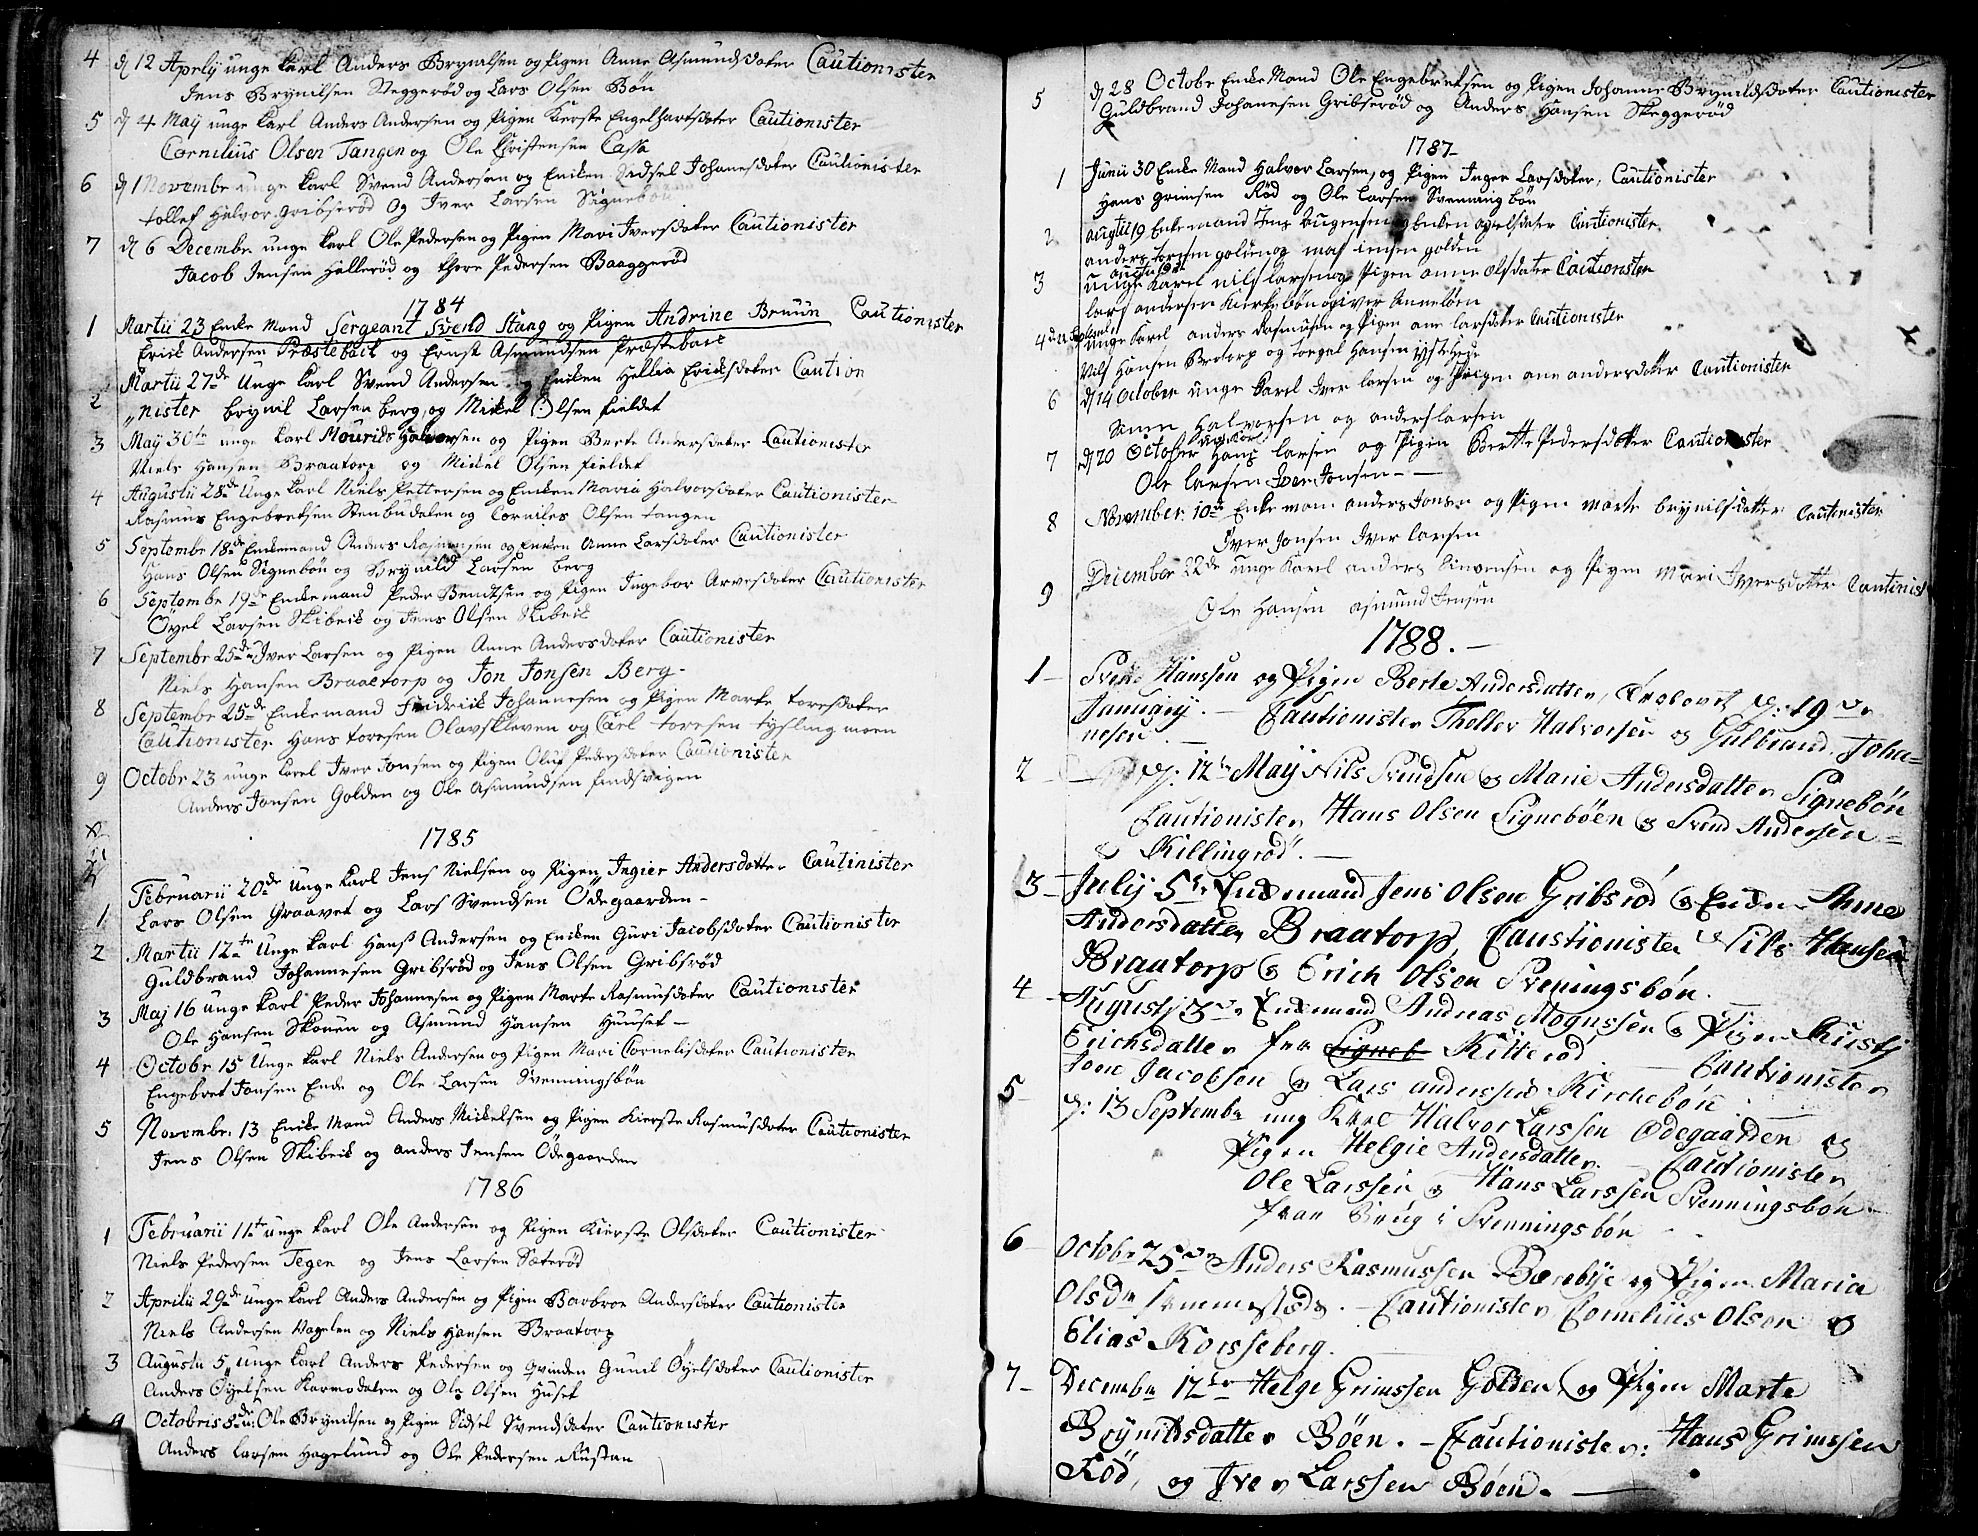 4 d 12 Aprely unge karl Anders Brynilsen og Pigen Anne Asmundsdater Cautionister
Jens Brynilsen Steggerød og Lars Olsen Bön
5 d 4 Maÿ unge karl Anders Andersen og Pigen Kierste Engelhartsdater Cautionister
Cornilius Olsen Tangen og Ole Christensen Cassa
6 d 1 Novembr unge karl Svend Andersen og Enken Sidsel Johanesdater Cautionister
tollef Halvor. gribserød og Iver Larsen Signebön
7 d 6 Decembr unge karl Ole Pedersen og Pigen Mari Iversdater Cautionister
Jacob Jensen Hallerød og thore Pedersen Baaggerød
1784
1 Martii 23 Enke Mand Sergeant Svend Stang og Pigen Andrine Bruun Cautionister
Erick Andersen Præsteback og Ernst Asmundsen Præsteback
2 Martii 27de Unge karl Svend Andersen og Enken Hellia Ericksdater Caution
„nister brynil Larsen berg og Mickel Olsen fieldet
3 Maÿ 30te unge karl Mourids Halvorsen og Pigen Berte Andersdater Cautionister
Niels Hansen Braatorp og Mickel Olsen fieldet
4 Augustii 28de Unge karl Niels Pettersen og Enken Maria Halvorsdater Cautionister
Rasmus Engebretsen Stenbudalen og Corniles Olsen tangen
5 Septembr 18de Enkemand Anders Rasmusen og Enken Anne Larsdater Cautionister
Hans Olsen Signebön og Brynild Larsen berg
6 Septembr 19de Enkemand Peder Bentsen og Pigen Ingebor Arvesdater Cautionister
Öyel Larsen Skibeck og Jens Olsen Skibeck
7 Septembr 25de Iver Larsen og Pigen Anne Andersdater Cautionister
Niels Hansen Braaetorp og Jon Jonsen Berg -
8 Septembr 25de Enkemand fridrick Johannesen og Pigen Marte toresdater
Cautionister Hans toresen Olavskleven og Carl toresen tysling moen
9 Octobr 23 unge karl Iver Jonsen og Pigen Oluf Pedersdater Cautionister
Anders Jonsen Golden og Ole Asmundsen findsvigen
1785
1 Februarii 20de Unge karl Jens Nielsen og Pigen Ingier Andersdatter Cautinister
Lars Olsen Graavet og Lars Svendsen Ödegaarden -
2 Martii 12te Unge karl Hans Andersen og Enken Guri Jacobsdater Cautionister
Guldbrand Johannesen Gribsrød og Jens Olsen Gribsrød
3 Maj 16 unge karl Peder Johannesen og Pigen Marte Rasmusdater Cautionister
Ole Hansen Skonen og Asmund Hansen Huuset -
4 Octobr 15 Unge karl Niels Andersen og Pigen Mari Cornelisdater Cautionister
Engebret Jonsen Ende og Ole Larsen Svenningsbön
5 Novembr. 13 Enke Mand Anders Mickelsen og Pigen Kierste Rasmusdater Cautionister
Jens Olsen Skibeck og anders Jensen Ödegaarden
1786
1 Februarii 11te unge karl Ole Andersen og Pigen Kierste Olsdater Cautionister
Niels Pedersen Tegen og Jens Larsen Sæterød
2 Aprilii 29de unge karl Anders Andersen og Pigen Barbroe Andersdater Cautionister
Niels Andersen Vagelen og Niels Hansen Braatorp
3 Augustii 5 unge karl Anders Pedersen og qvinden Gunil Öyelsdater Cautionister
Anders Öyelsen Karmodalen og Ole Olsen Huset
4 Octobris 8de Ole Brynilsen og Pigen Sidsel Svendsdater Cautionister
Anders Larsen Hagelund og Ole Pedersen Rustan
5 d 28 Octobr Enke Mand Ole Engebretsen og Pigen Johanne Brynildsdater Cautionister
Guldbrand Johanesen Gribserød og Anders Hansen Skeggerød
1787
1 Junii 30 Enke Mand Halvor Larsen, og Pigen Inger Larsdater, Cautionister
Hans grimsen Rød og Ole Larsen Svenningbön
2 augtii 19 Enkemand Jens og Enken Cautionister
anders torsen golden og mas iensen golden
augusti
3 unge Karel nils larsen og Pigen anne olsdater Cautionister
lars andersen Kierkebön og iver Annelöen
4 unge karel anders Rasmusen og Pigen ane larsdater Cautionister
Nils Hansen Brotorp og torgal Hansen
6 d 14 October unge karel Iver larsen og Pigen ane andersdater Cautionister
Halvorsen og anders larsen
7 d 20 October Hans larsen og Pigen Berthe Pedersdater Cautionister
Ole larsen Iver Jonsen -
8 November 10de Enke man anders Jonsen og Pigen marte brynilsdatter Cautinister
Iver Jonsen Iver larsen
9 Deicember 22de unge Karel anders Simensen og Pigen Mari Iversdatter Cautinist
Ole Hansen asmund Jensen
1788. -
1 - Svend Hanssen og Pigen Berte Andersdatter, Trolovet d: 19de
Januarij. - Cautionister Thollev Halvorsen og Gulbrand Joha=
nesen. -
2 - d: 12te Maÿ Nils Svendsen og Marie Andersdatter Signebön
Cautionister Hans Olsen Signebøen og Svend Andersen =
Killingrød. -
3 - Julij 5te Enkemand Jens Olsen Gribsrød og Enken Anne
Andersdatter Braatorp, Caustionister Nils Hansen
Braatorp og Erich Olsen Sveningsbøn.
4 - Augustj 3de Enkemand Andreas Mognssen og Pigen Kirstj
Erichsdatter fra Signeb Kitterød - Cautionister
Joen Jacobsen og Lars anderssen Kirchebön.
5 - d: 13 Septembr ung Karl Halvor Larssen Ødegaarden og
Pigen Helgie Andersdatter. - Cautionister
Ole Larssen og Hans Larssen Svenningsbön -
fran Brug i Svenningsbön -
6 - Octobr 25de Anders Rasmussen Bærebye og Pigen Maria
Olsdr Sommestads. - Cautionister Cornelius Olsen og
Elias Korsseberg.
7 - Decembr 12te Helge Grimssen Golden, og Pigen Marte
Brynildsdatter Bøen. - Cautionister: Hans Grimssen
Rød, og Iver Larssen Bøen. -